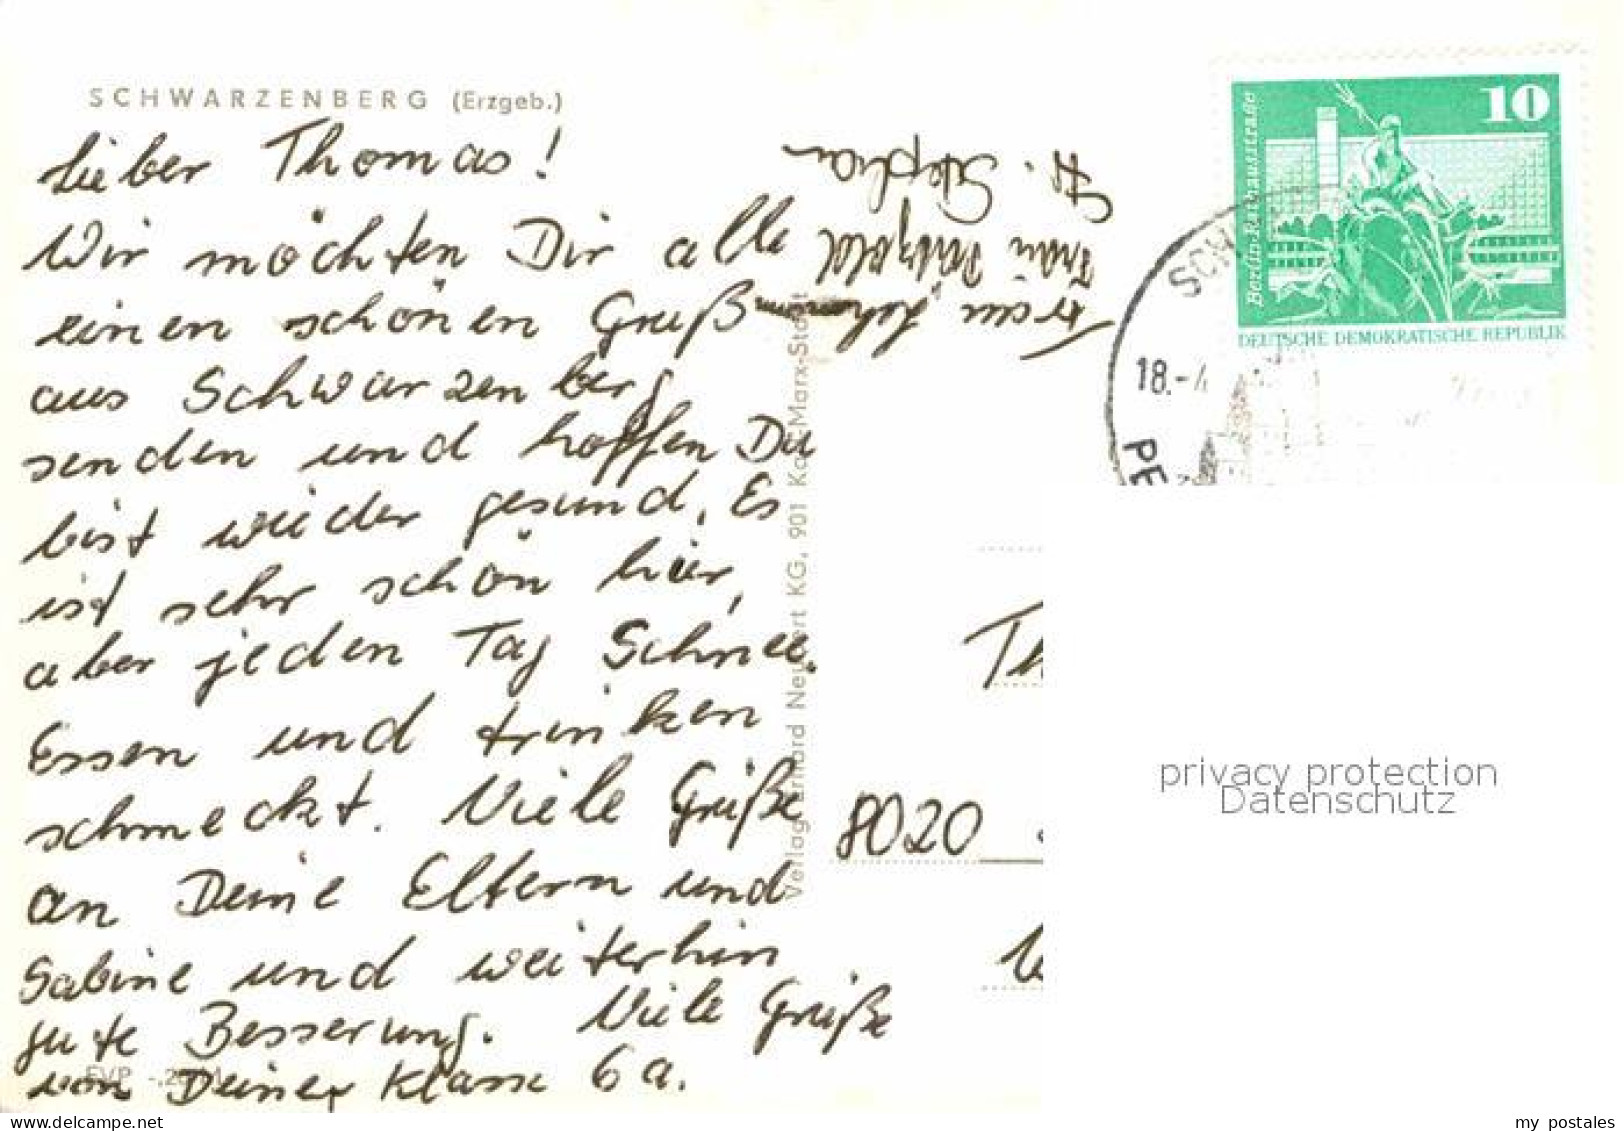 SCHWARZENBERG (Erzgeb.)
Lieber Thomas!
Wir möchten Dir alle
einen schönen Gruß
aus Schwarzenberg
senden und hoffen Du
bist wieder gesund. Es
ist sehr schön hier,
aber jeden Tag Schnee.
Essen und trinken
schmeckt. Viele Grüße
an Deine Eltern und
Sabine und weiterhin
gute Besserung. Viele Grüße
von Deiner Klasse 6a.
EVP
H. Stephan
Frau
Verlag Erhard Neubert KG, 901 Karl-Marx-Stadt
10
Berlin-Rathausstraße
DEUTSCHE DEMOKRATISCHE REPUBLIK
SCHW
18.-4
PE
Th
8020
privacy protection
Datenschutz
my postales